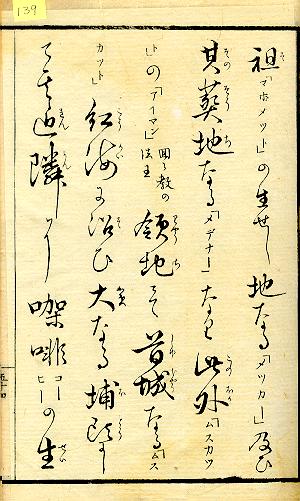 139
祖「マホメット」の生せし地なる「メッカ」及ひ
其葬地なる「メデナー」なり此外「ムスカツ
ト」の「アイマン」回々教の法王領地にて首城なる「ムス
カット」紅海に沿ひ大なる埔頭にし
て其近隣より咖啡コーヒーの生